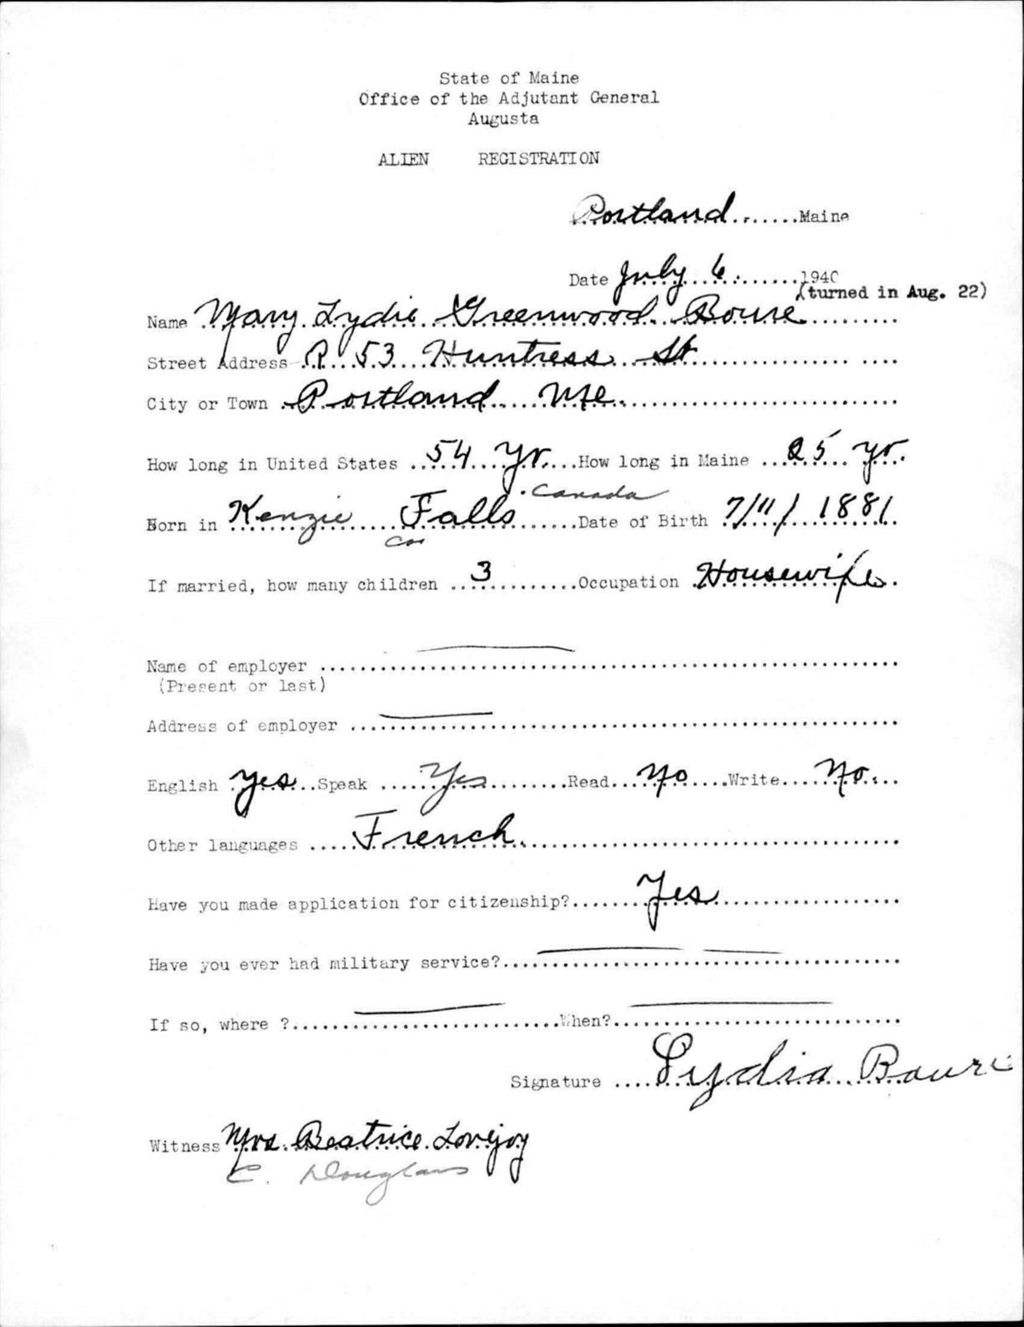 State of Maine
Office of the Adjutant General
Augusta
ALIEN REGISTRATION
Portland.......Maine
Date July 6..........1940
(turned in Aug. 22)
Name Mary Lydie Greenwood Boure
Street Address R 53 Huntress St
City or Town Portland Me
How long in United States 54 Yr. How long in Maine 25 yr.
Canada
Born in Kenzie Falls Date of Birth 7/11/1881
If married, how many children 3 Occupation Housewife
Name of employer
(Present or last)
Address of employer
English Yes Speak Yes Read No Write No
Other languages French
Have you made application for citizenship? Yes
Have you ever had military service?
If so, where ? When?
Signature Lydia Boure
Witness Mrs. Beatrice Lovejoy
C. Douglass